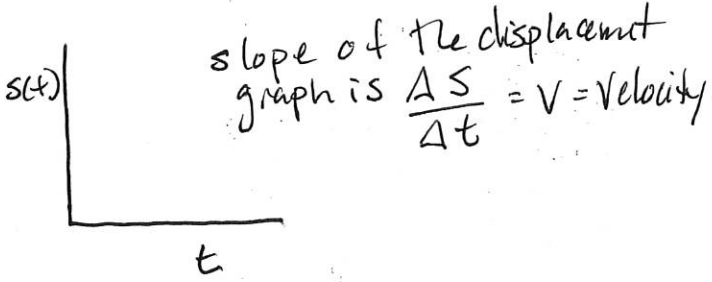 slope of the displacemnt
graph is ΔS/Δt = V = Velocity
s(t)
t